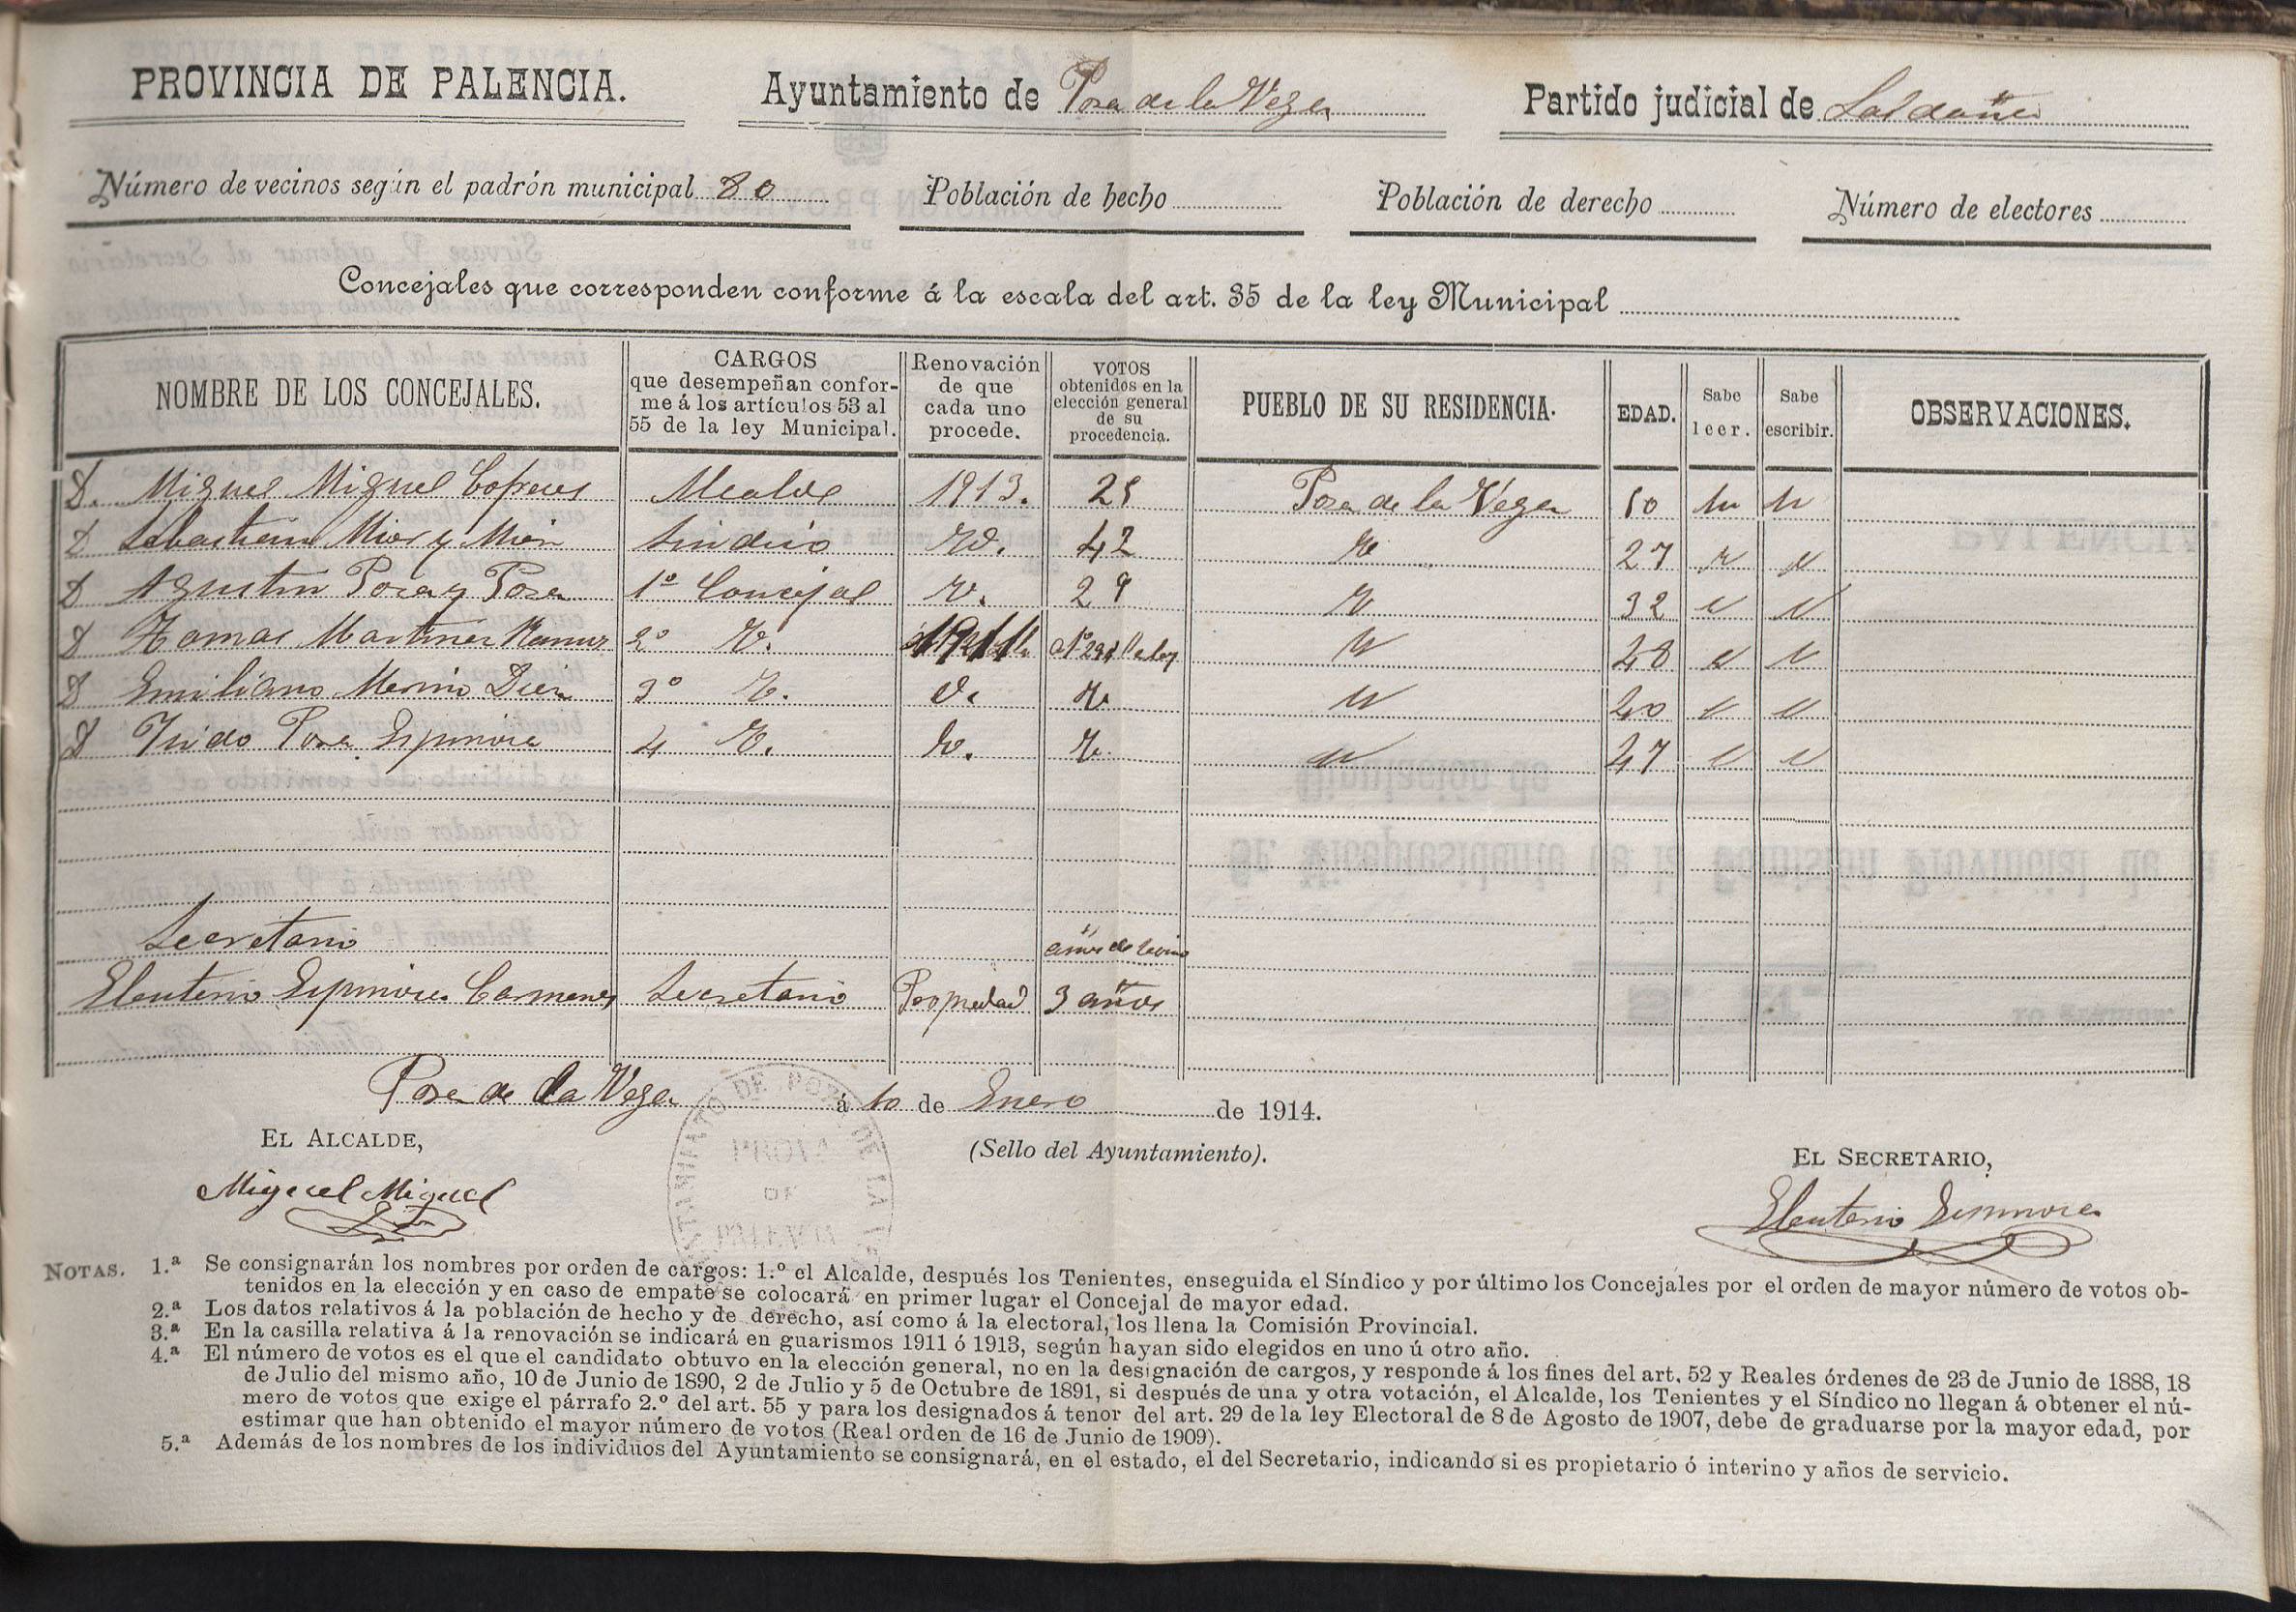 PROVINCIA DE PALENCIA. Ayuntamiento de Poza de la Vega Partido judicial de Saldaña
Número de vecinos según el padrón municipal 80 Población de hecho Población de derecho Número de electores
Concejales que corresponden conforme á la escala del art. 35 de la ley Municipal
NOMBRE DE LOS CONCEJALES.
CARGOS
que desempeñan confor-
me á los artículos 53 al
55 de la ley Municipal.
Renovación
de que
cada uno
procede.
VOTOS
obtenidos en la
elección general
de su
procedencia.
PUEBLO DE SU RESIDENCIA.
EDAD.
Sabe
leer.
Sabe
escribir.
OBSERVACIONES.
D. Miguel Miguel Alcalde 1913. Poza de la Vega 50
D Sebastian Mier y Mier Sindico id. 42 id 27
D Agustin Poza y Poza 1º Concejal id. 29 id 32
D Tomas Martinez 2º id. 1911 id 48
D Emiliano Merino Diez 3º id. id. id 40
D Poza Espinosa 4 id. id. id 47
Secretario años de
Eleuterio Espinosa Secretario Propiedad 3 años
Poza de la Vega á 10 de Enero de 1914.
EL ALCALDE,
(Sello del Ayuntamiento).
EL SECRETARIO,
Miguel Miguel
Eleuterio Espinosa
AYUNTAMIENTO DE POZA DE LA
PROVA
DE
PALENCIA
NOTAS. 1.ª Se consignarán los nombres por orden de cargos: 1.º el Alcalde, después los Tenientes, enseguida el Síndico y por último los Concejales por el orden de mayor número de votos ob-
tenidos en la elección y en caso de empate se colocará en primer lugar el Concejal de mayor edad.
2.ª Los datos relativos á la población de hecho y de derecho, así como á la electoral, los llena la Comisión Provincial.
3.ª En la casilla relativa á la renovación se indicará en guarismos 1911 ó 1913, según hayan sido elegidos en uno ú otro año.
4.ª El número de votos es el que el candidato obtuvo en la elección general, no en la designación de cargos, y responde á los fines del art. 52 y Reales órdenes de 23 de Junio de 1888, 18
de Julio del mismo año, 10 de Junio de 1890, 2 de Julio y 5 de Octubre de 1891, si después de una y otra votación, el Alcalde, los Tenientes y el Síndico no llegan á obtener el nú-
mero de votos que exige el párrafo 2.º del art. 55 y para los designados á tenor del art. 29 de la ley Electoral de 8 de Agosto de 1907, debe de graduarse por la mayor edad, por
estimar que han obtenido el mayor número de votos (Real orden de 16 de Junio de 1909).
5.ª Además de los nombres de los individuos del Ayuntamiento se consignará, en el estado, el del Secretario, indicando si es propietario ó interino y años de servicio.